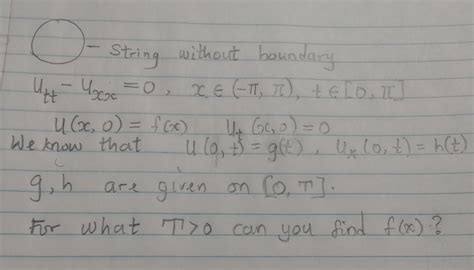 – String without boundary
u_tt – u_xx = 0 , x ∈ (-π, π), t ∈ [0, π]
u(x, 0) = f(x) u_t(x, 0) = 0
We know that u(0, t) = g(t) , u_x(0, t) = h(t)
g, h are given on [0, T].
For what T>0 can you find f(x)?